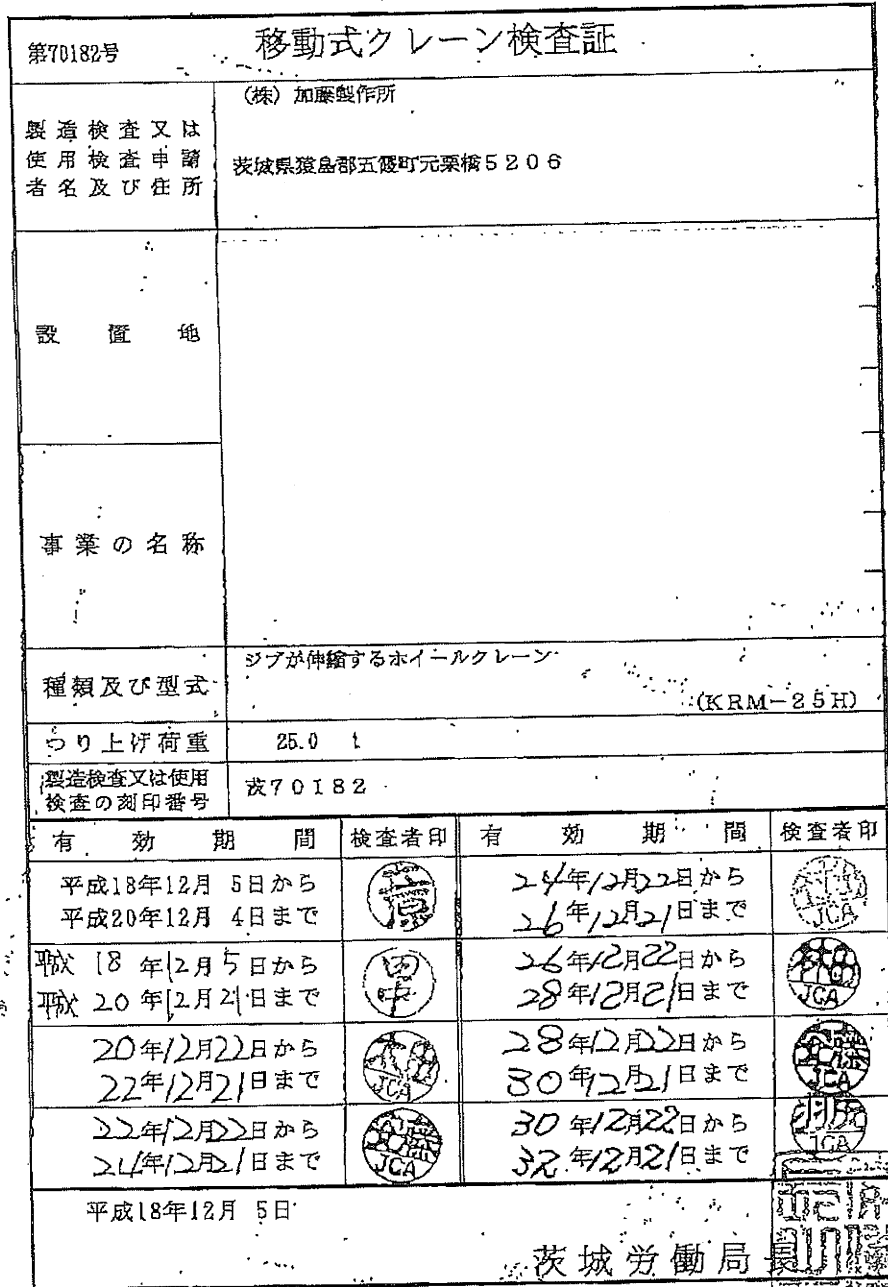 第70182号
移動式クレーン検査証
製造検査又は
使用検査申請
者名及び住所
(株) 加藤製作所
茨城県猿島郡五霞町元栗橋5206
設置地
事業の名称
種類及び型式
ジブが伸縮するホイールクレーン
(KRM-25H)
つり上げ荷重
25.0 t
製造検査又は使用
検査の刻印番号
茨70182
有効期間 検査者印 有効期間 検査者印
平成18年12月 5日から
平成20年12月 4日まで
24年12月22日から
26年12月21日まで
JCA
平成 18 年12月 5 日から
平成 20 年12月 21日まで
田中
26年12月22日から
28年12月21日まで
JCA
20年12月22日から
22年12月21日まで
JCA
28年12月22日から
30年12月21日まで
JCA
22年12月22日から
24年12月21日まで
JCA
30年12月22日から
32年12月21日まで
JCA
平成18年12月 5日
茨城労働局長